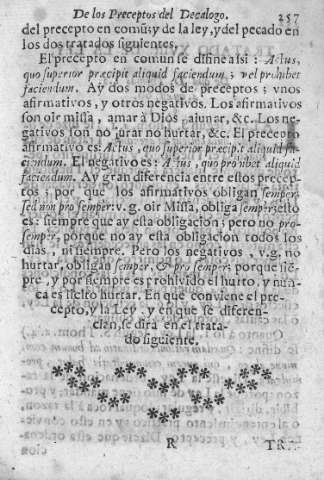 De los Preceptos del Decalogo. 257
del precepto en comũ; y de la ley, y del pecado en
los dos tratados siguientes.
El precepto en comun se difine asi: Actus,
quo superior præcipit aliquid faciendum; vel prohibet
faciendum. Ay dos modos de preceptos; vnos
afirmativos, y otros negativos. Los afirmativos
son oir missa, amar à Dios, aiunar, &c. Los ne-
gativos son no jurar no hurtar, &c. El precepto
afirmativo es: Actus, quo superior præcipit aliquid fa-
ciendum. El negativo es: Actus, quo prohibet aliquid
faciendum. Ay gran diferencia entre estos precep-
tos; por que los afirmativos obligan semper,
sed non pro semper: v. g. oir Missa, obliga semper; esto
es: siempre que ay esta obligacion; pero no pro-
semper, porque no ay esta obligacion todos los
dias, ni siempre. Pero los negativos, v.g. no
hurtar, obligan semper, & pro semper; porque siẽ-
pre, y por siempre es prohivido el hurto, y nun-
ca es licito hurtar. En que conviene el pre-
cepto, y la Ley, y en que se diferen-
cian, se dira en el trata-
do siguiente.
R TRA-